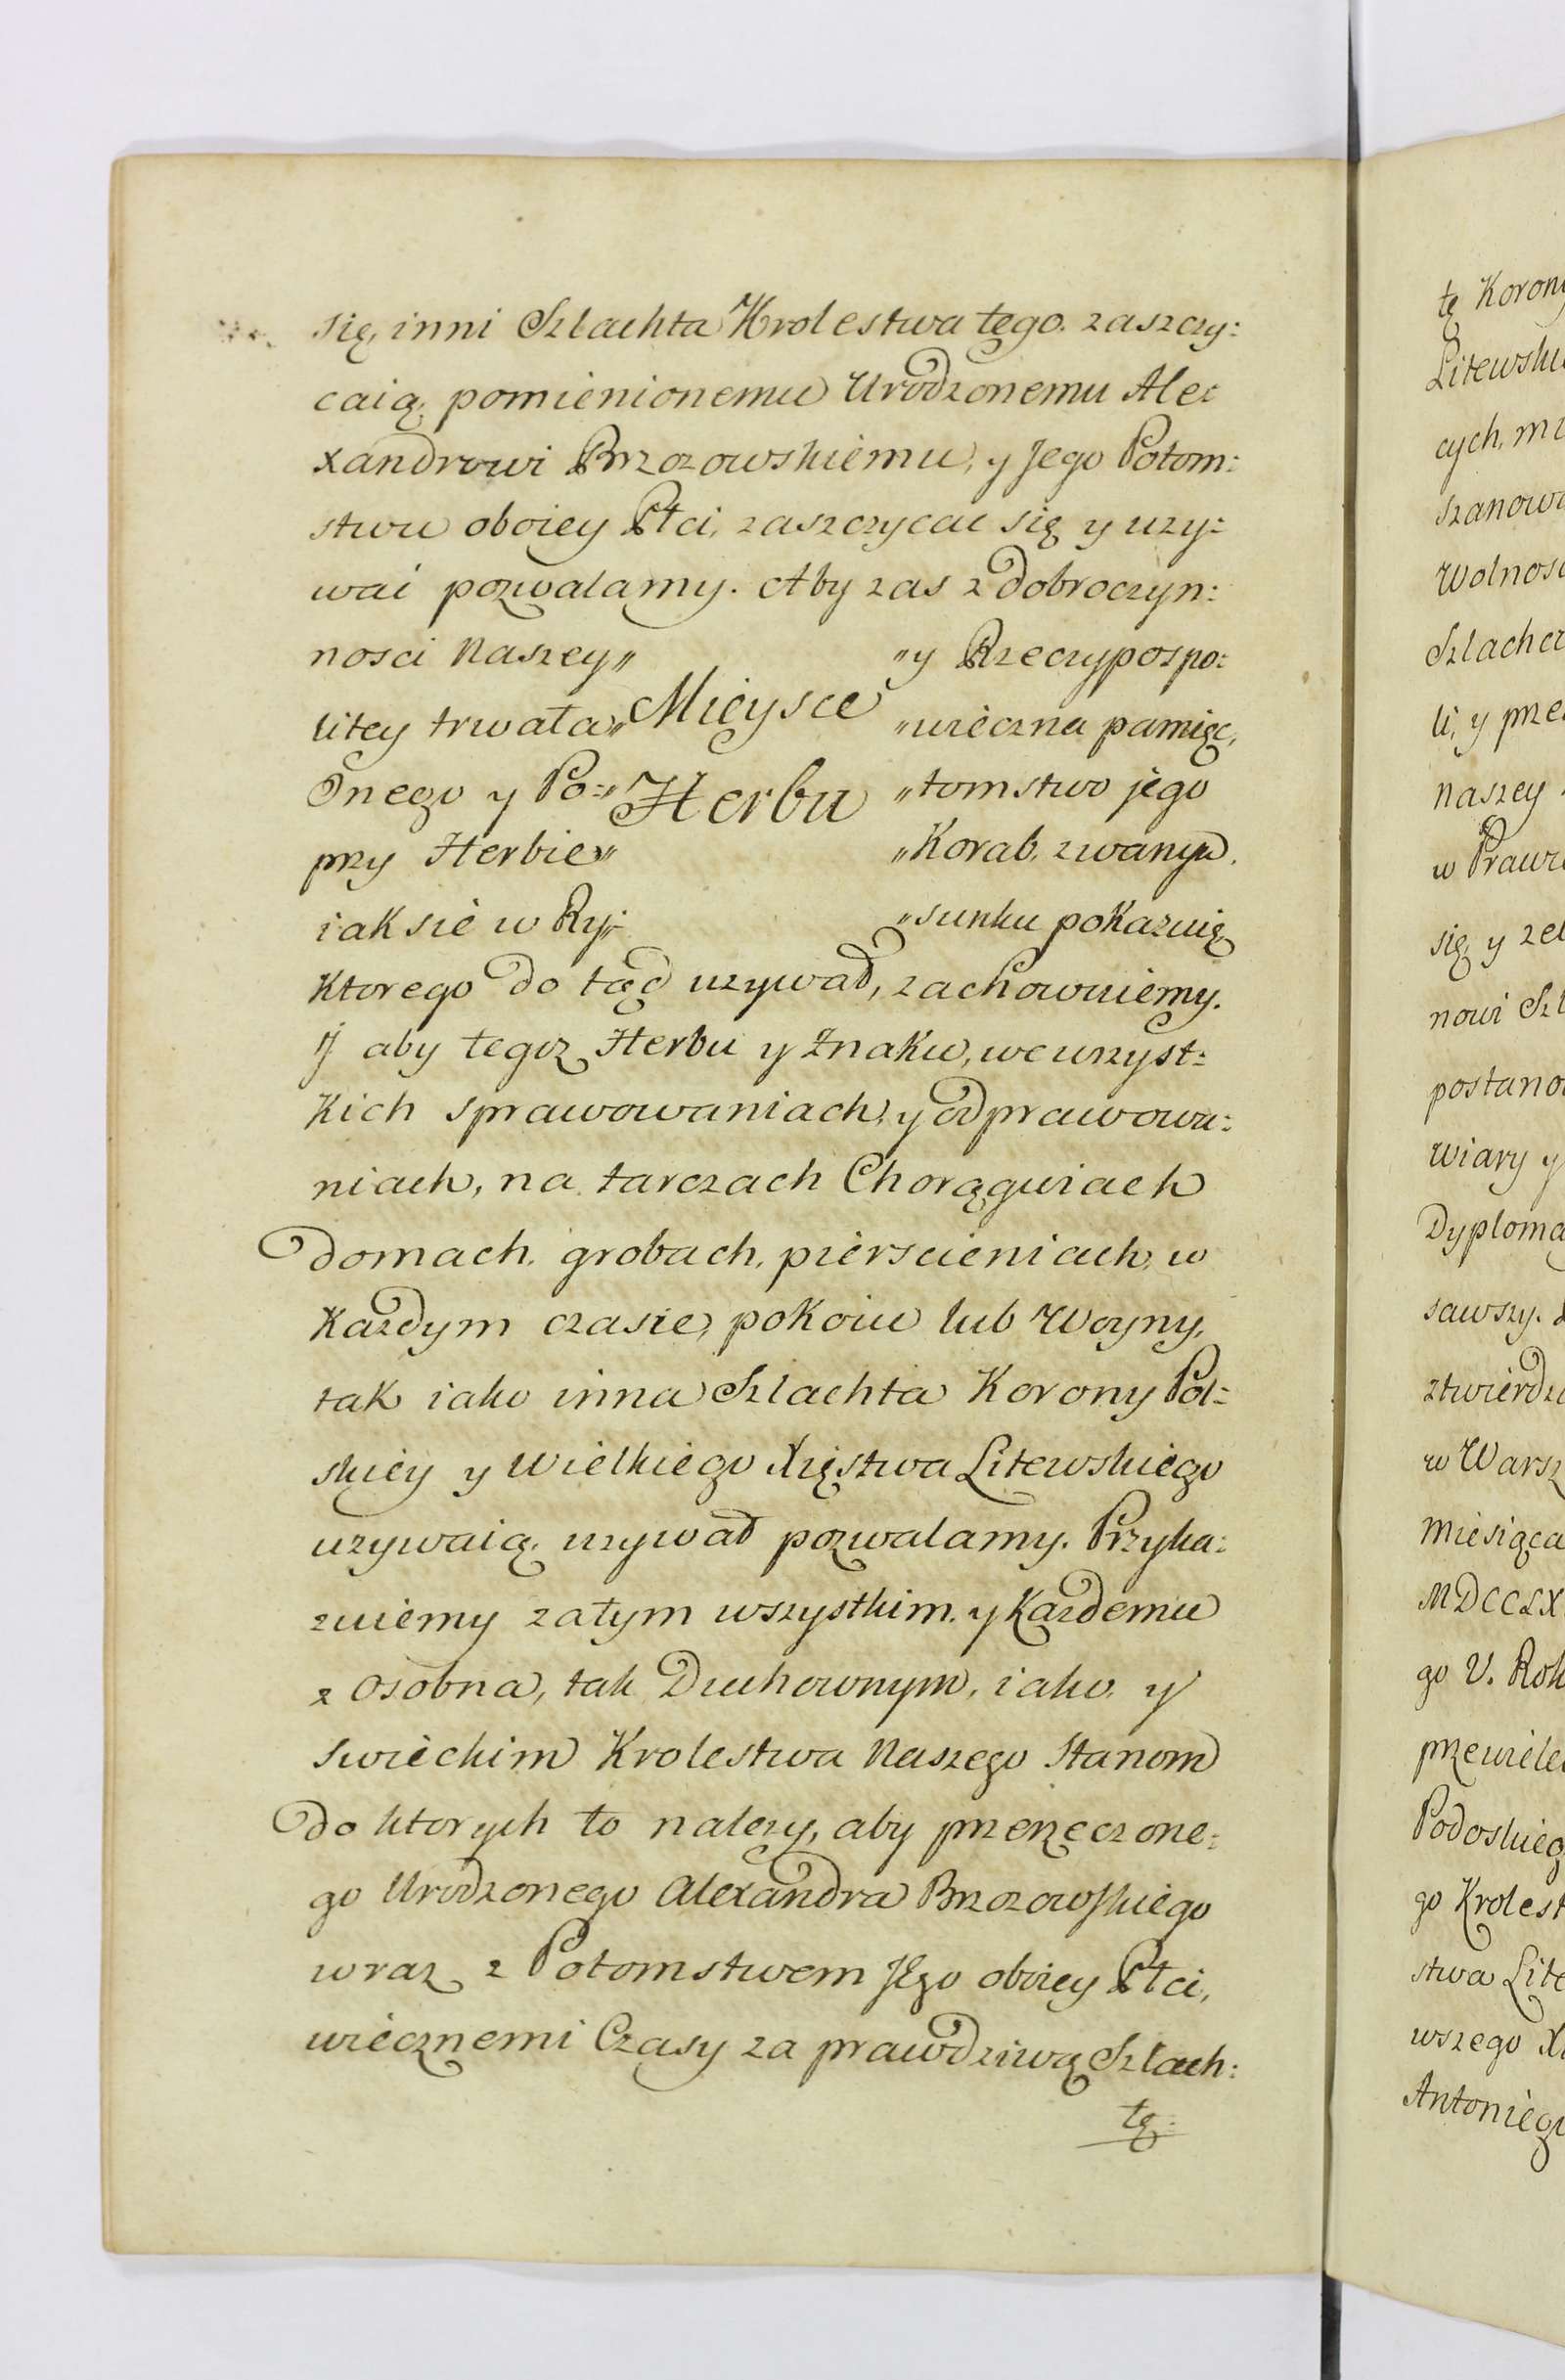 się, inni Szlachta Krolestwa tego. zaszczy:
caią, pomienionemu Urodzonemu Ale:
xandrowi Brzozowskiemu, y Jego Potom:
stwu oboiey Płci, zaszczycac się y uzy:
wai pozwalamy. Aby zas z dobroczyn:
nosci Naszey „ „ y Rzeczypospo:
litey trwała „ Mieysce „ wieczna pamięc,
Onego y Po: „ Herbu „ tomstwo jego
przy Herbie „ „ Korab, zwanym.
iak sie w Ry: „ sunku pokazuię
Ktorego do tąd uzywał, zachowuiemy.
Y aby tegoz Herbu y Znaku, we wszyst:
Kich sprawowaniach, y odprawowa:
niach, na tarczach Chorągwiach
domach, grobach, pierscieniach, w
Kazdym czasie, pokoiu lub Woyny,
tak iako inna Szlachta Korony Pol:
skiey y Wielkiego Xięstwa Litewskiego
uzywaią, uzywał pozwalamy. Przyka:
zuiemy zatym wszystkim, y Kazdemu
z osobna, tak Duchownym, iako, y
swieckim Krolestwa Naszego Stanom
do ktorych to nalezy, aby przerzeczone:
go Urodzonego Alexandra Brzozowskiego
wraz z Potomstwem Jego oboiey Płci,
wiecznemi Czasy za prawdziwą Szlach:
tę
tę Korony
Litewski
cych, m
szanowa
Wolnosc
Szlachec
li, y prze
naszey
w Prawie
się, y ze
nowi Szl
postano
wiary y
Dyploma
sawszy.
ztwierdz
w Warsz
Miesiąca
MDCCLX
go V. Rok
przewiele
Podoskieg
go Krolest
stwa Lite
wszego X
Antoniego